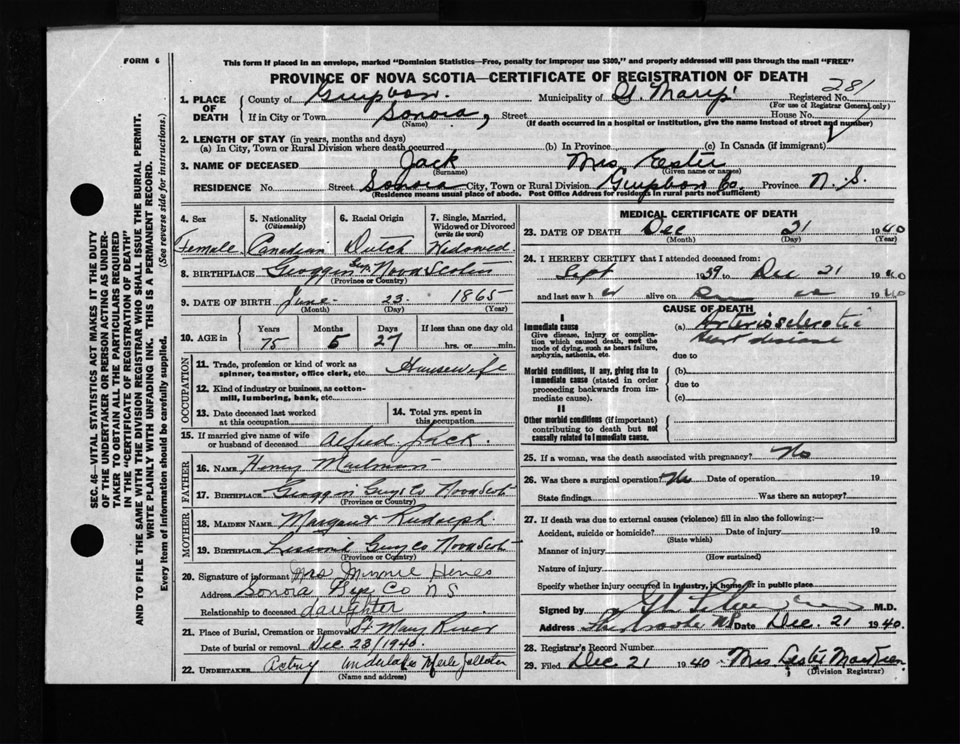 FORM 6
This form if placed in an envelope, marked "Dominion Statistics—Free, penalty for improper use $300," and properly addressed will pass through the mail "FREE"
PROVINCE OF NOVA SCOTIA—CERTIFICATE OF REGISTRATION OF DEATH
281
1. PLACE OF DEATH
County of Municipality of St. Mary's Registered No.
(For use of Registrar General only)
If in City or Town Sonora, Street House No.
(Name) (If death occurred in a hospital or institution, give the name instead of street and number)
2. LENGTH OF STAY (in years, months and days)
(a) In City, Town or Rural Division where death occurred (b) In Province (c) In Canada (if immigrant)
3. NAME OF DECEASED Jack Mrs. Ester
(Surname) (Given name or names)
RESIDENCE No. Street Sonora City, Town or Rural Division Co. Province N. S.
(Residence means usual place of abode. Post Office Address for residents in rural parts not sufficient)
SEC. 46—VITAL STATISTICS ACT MAKES IT THE DUTY
OF THE UNDERTAKER OR PERSON ACTING AS UNDER-
TAKER TO OBTAIN ALL THE PARTICULARS REQUIRED
IN THE "CERTIFICATE OF REGISTRATION OF DEATH"
AND TO FILE THE SAME WITH THE DIVISION REGISTRAR WHO SHALL ISSUE THE BURIAL PERMIT.
WRITE PLAINLY WITH UNFADING INK. THIS IS A PERMANENT RECORD.
Every item of Information should be carefully supplied. (See reverse side for instructions.)
4. Sex 5. Nationality 6. Racial Origin 7. Single, Married, Widowed or Divorced
(Citizenship) (write the word)
Female Canadian Dutch Widowed
8. BIRTHPLACE Nova Scotia
(Province or Country)
9. DATE OF BIRTH June 23 1865
(Month) (Day) (Year)
10. AGE in Years Months Days If less than one day old
75 5 27 hrs. or min.
OCCUPATION
11. Trade, profession or kind of work as spinner, teamster, office clerk, etc. Housewife
12. Kind of industry or business, as cotton-mill, lumbering, bank, etc.
13. Date deceased last worked at this occupation
14. Total yrs. spent in this occupation
15. If married give name of wife or husband of deceased Alfred Jack.
FATHER
16. NAME Henry
17. BIRTHPLACE Guys Co Nova Scot
(Province or Country)
MOTHER
18. MAIDEN NAME Margaret Rudolph
19. BIRTHPLACE Guy Co Nova Scot
(Province or Country)
20. Signature of informant Mrs Minnie
Address Sonora Co N S
Relationship to deceased daughter
21. Place of Burial, Cremation or Removal St Mary River
Date of burial or removal Dec. 23/1940
22. UNDERTAKER Acting undertaker Merle
(Name and address)
MEDICAL CERTIFICATE OF DEATH
23. DATE OF DEATH Dec 21 1940
(Month) (Day) (Year)
24. I HEREBY CERTIFY that I attended deceased from:
Sept 1939 to Dec 21 1940
and last saw h er alive on 1940
CAUSE OF DEATH
I
Immediate cause
Give disease, injury or complication which caused death, not the mode of dying, such as heart failure, asphyxia, asthenia, etc.
(a) Arteriosclerotic
heart disease
due to
Morbid conditions, if any, giving rise to immediate cause (stated in order proceeding backwards from immediate cause).
(b)
due to
(c)
II
Other morbid conditions (if important) contributing to death but not causally related to immediate cause.
25. If a woman, was the death associated with pregnancy? No
26. Was there a surgical operation? No Date of operation 19
State findings Was there an autopsy?
27. If death was due to external causes (violence) fill in also the following:—
Accident, suicide or homicide? Date of injury 19
(State which)
Manner of injury
(How sustained)
Nature of injury
Specify whether injury occurred in industry, in home, or in public place
Signed by M.D.
Address Sherbrooke NS Date Dec. 21 1940
28. Registrar's Record Number
29. Filed Dec 21 1940 Mrs.
(Division Registrar)